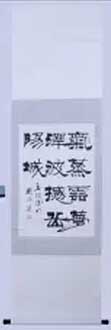 氣蒸雲夢
澤波撼岳
陽城